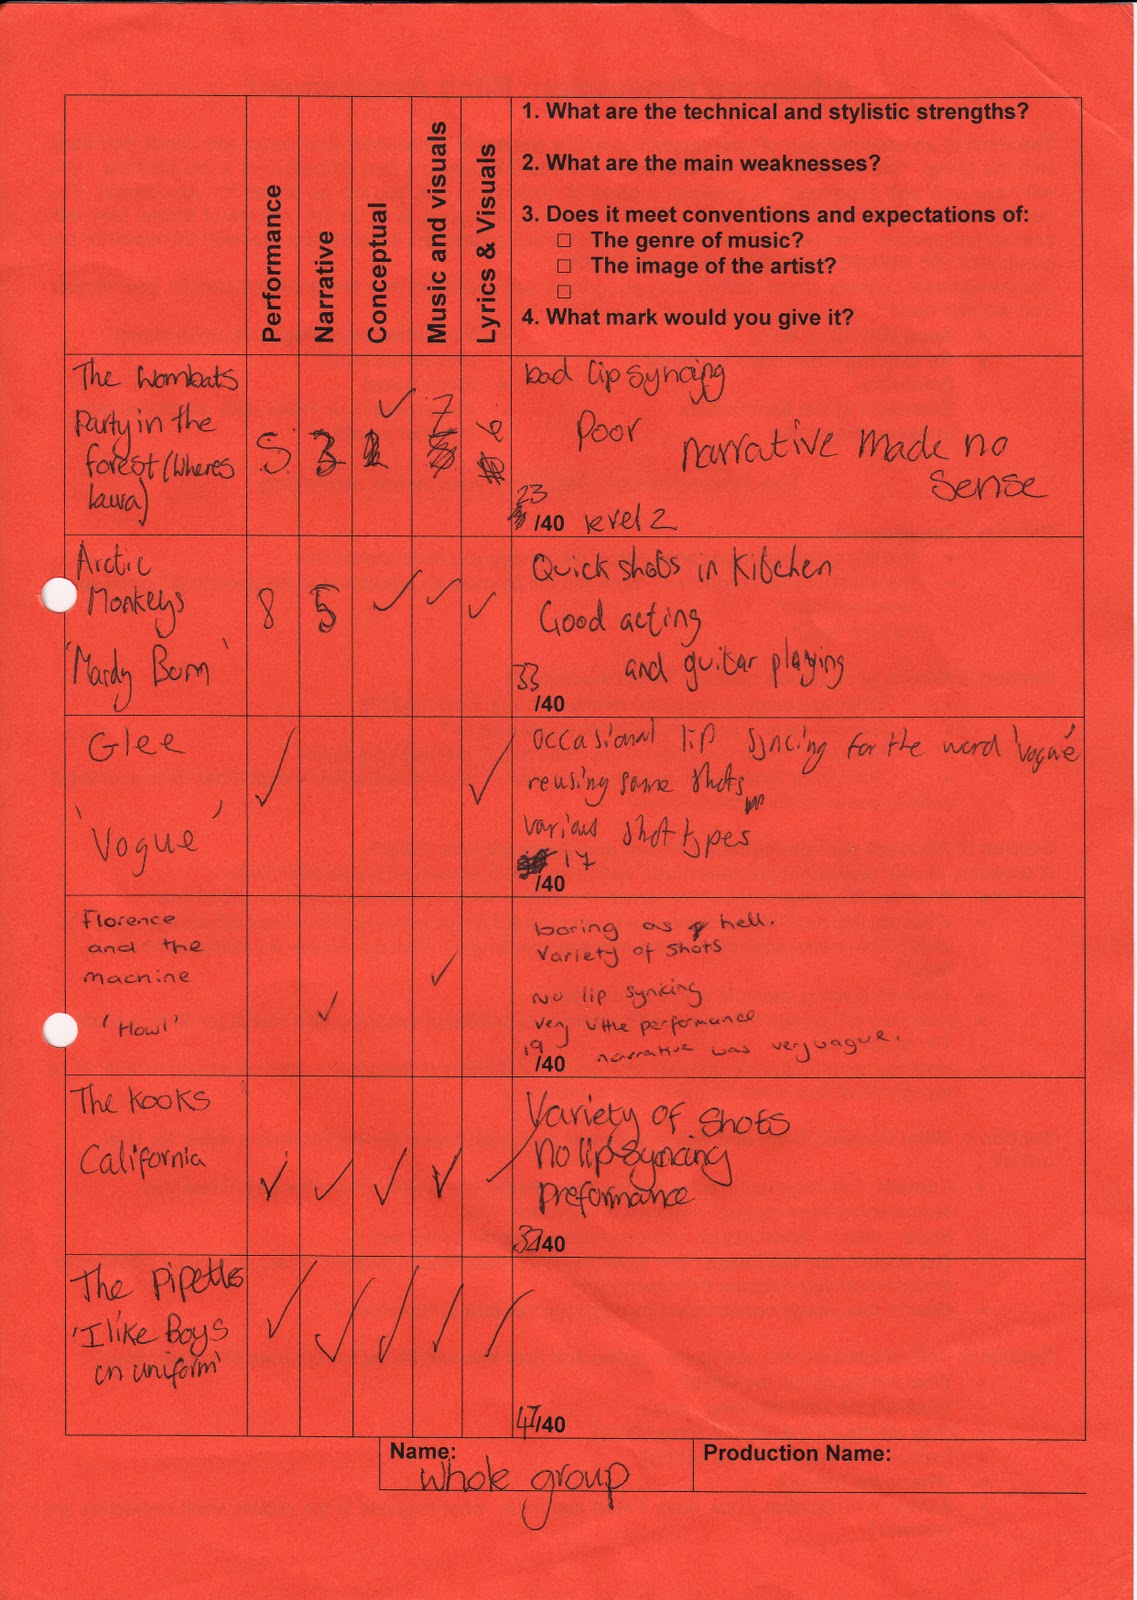 Performance
Narrative
Conceptual
Music and visuals
Lyrics & Visuals
1. What are the technical and stylistic strengths?
2. What are the main weaknesses?
3. Does it meet conventions and expectations of:
□ The genre of music?
□ The image of the artist?
□
4. What mark would you give it?
The Wombats
Party in the
forest (Wheres
Laura)
5
3
✓
7
6
bad lip syncing
Poor narrative made no
sense
23
/40 level 2
Arctic
Monkeys
'Mardy Bum'
8
5
✓
✓
✓
Quick shots in Kitchen
Good acting
and guitar playing
33
/40
Glee
'Vogue'
✓
✓
occasional lip syncing for the word 'vogue'
reusing same shots
various shot types
17
/40
Florence
and the
machine
'Howl'
✓
✓
boring as hell.
Variety of shots
No lip syncing
very little performance
19 narrative was very vague.
/40
The Kooks
California
✓
✓
✓
✓
✓
Variety of shots
No lip syncing
Preformance
/40
The Pipettes
'I like Boys
in uniform'
✓
✓
✓
✓
✓
/40
Name:
Whole group
Production Name: